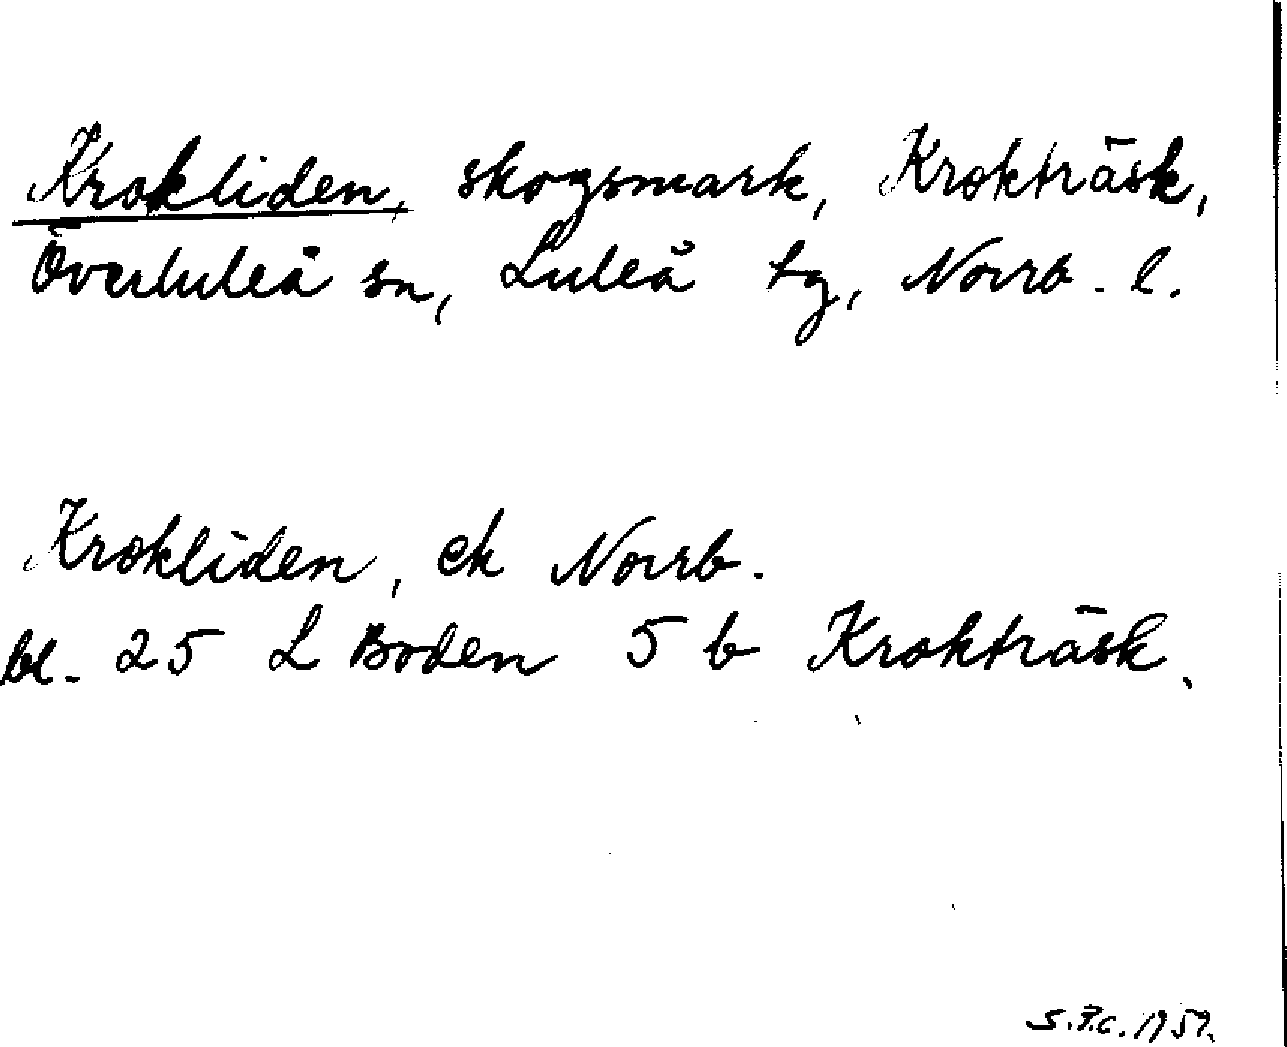 Krokliden, skogsmark, Krokträsk,
Överluleå sn, Luleå tg, Norrb. l.
Krokliden, ek Norrb.
bl. 25 L Boden 5 b Krokträsk.
1959.